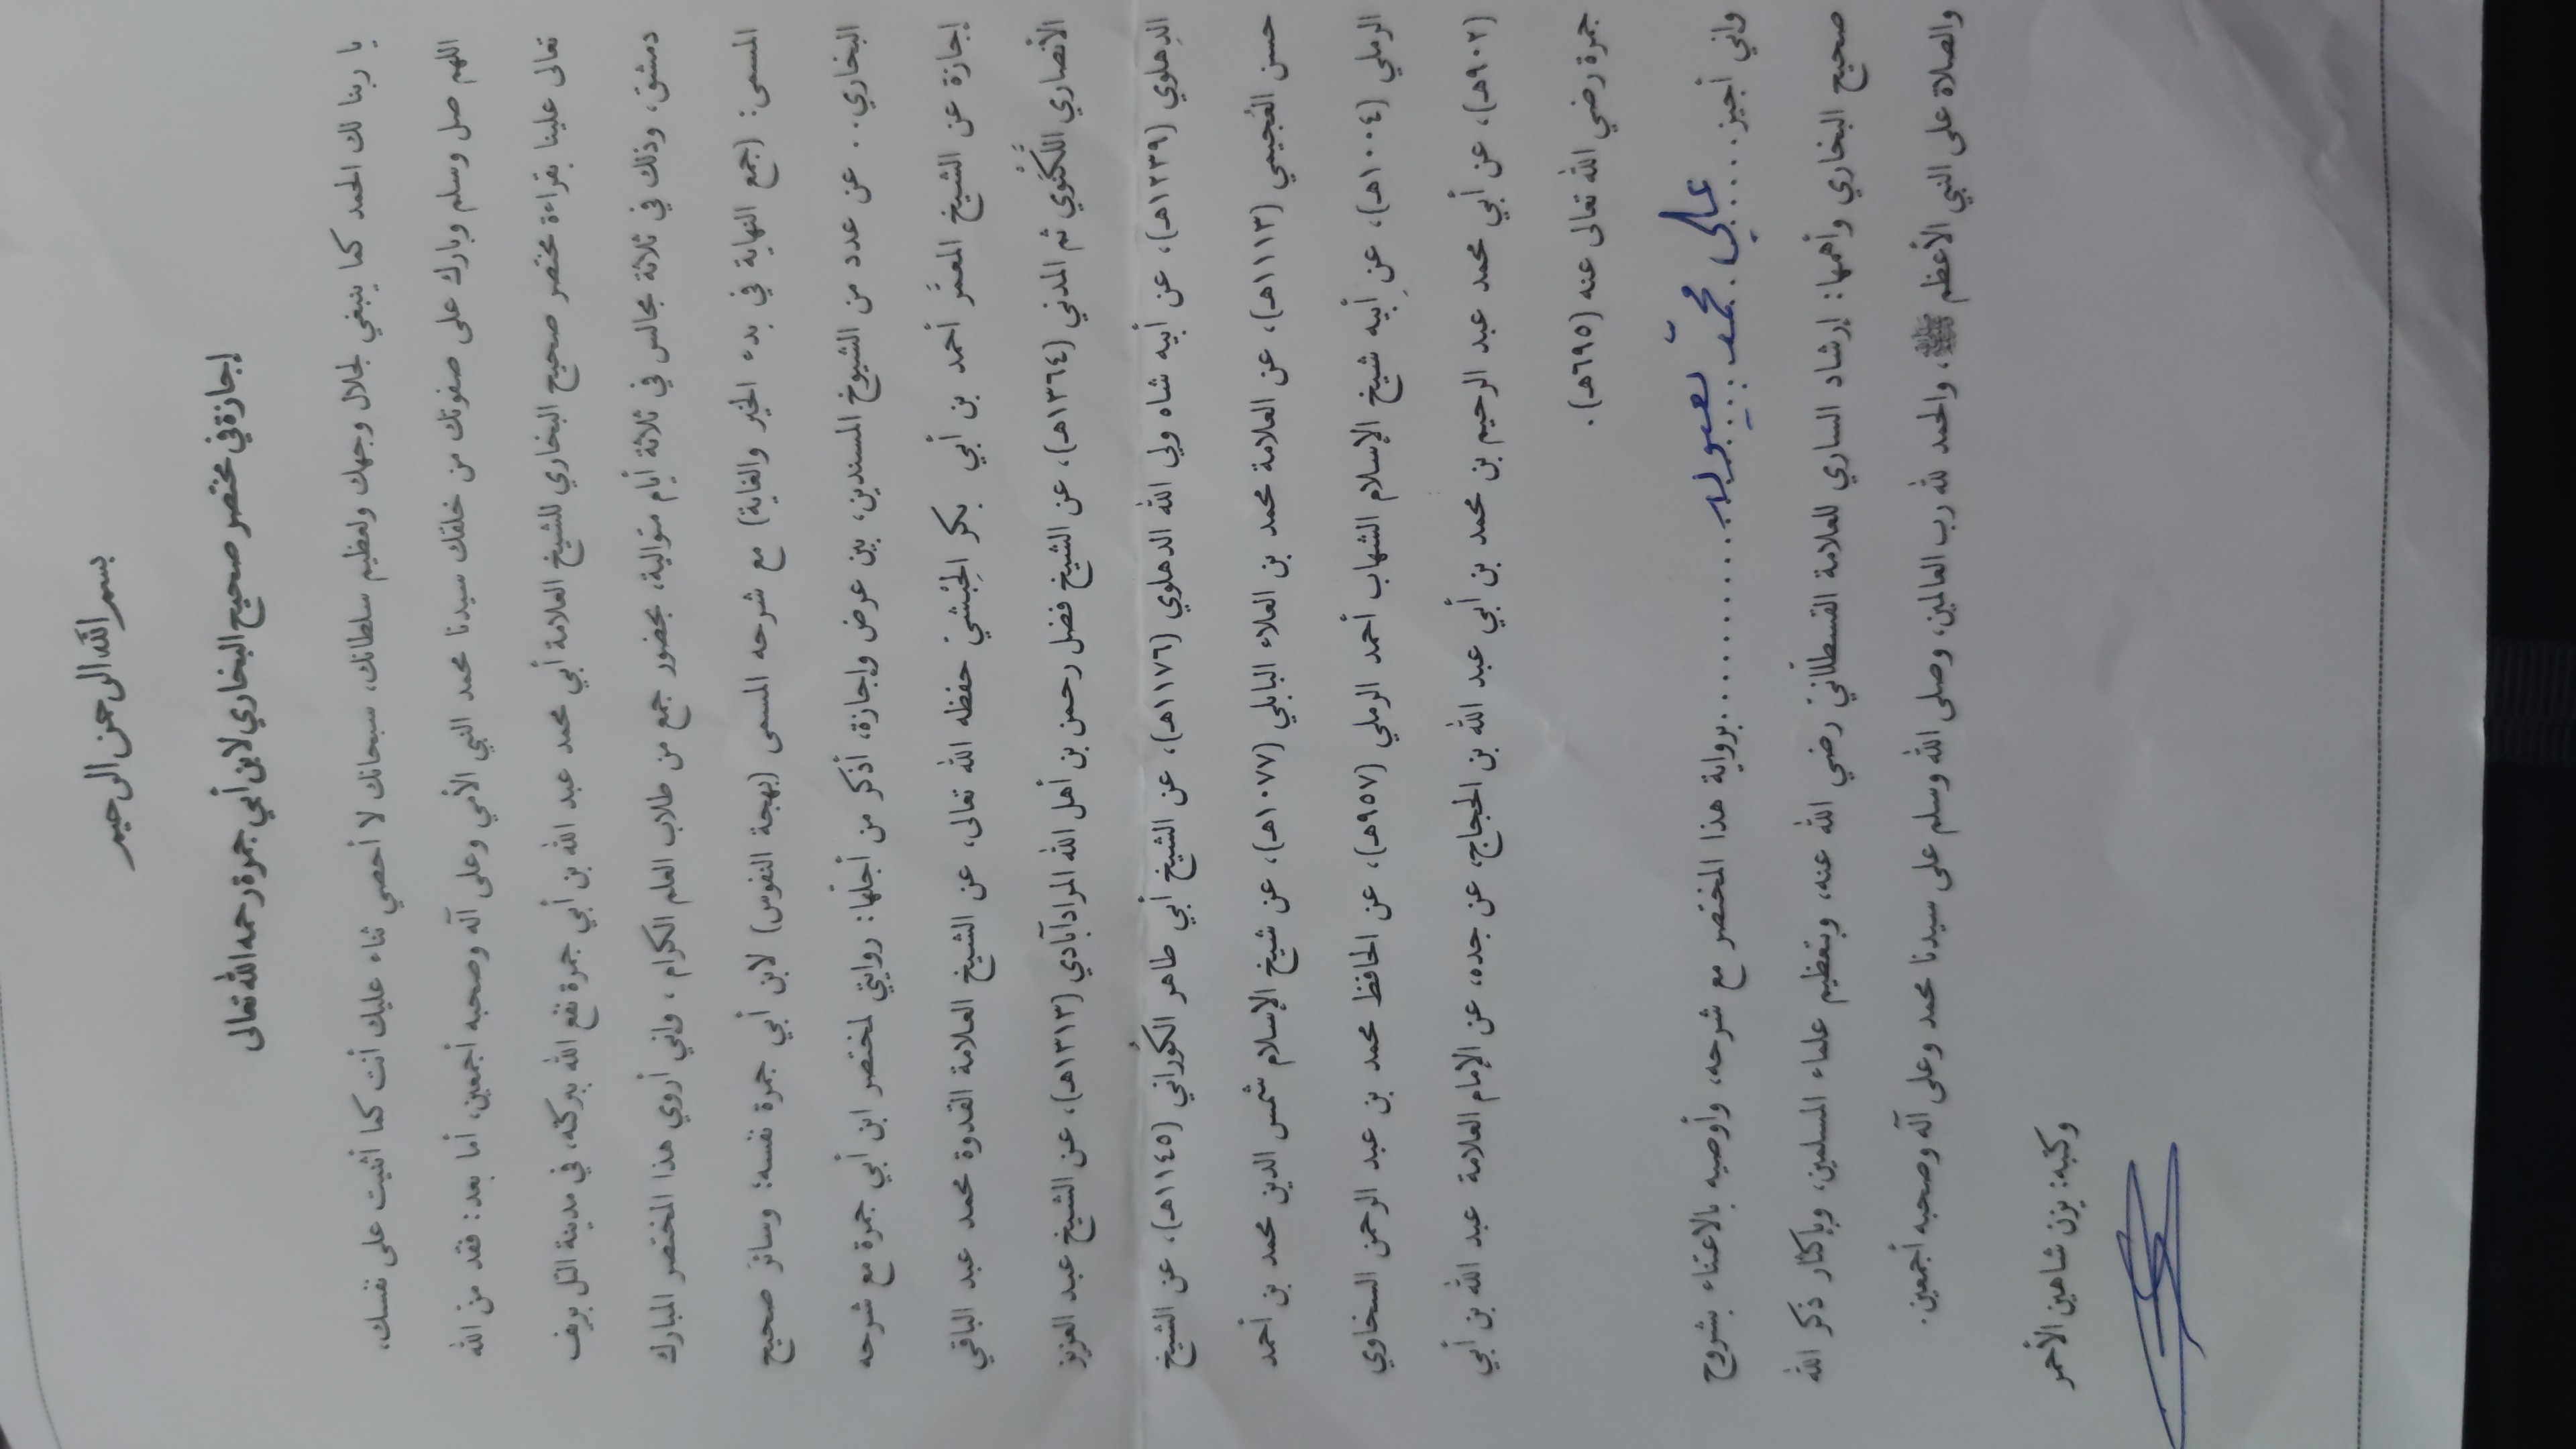 بسم الله الرحمن الرحيم
إجازة في مختصر صحيح البخاري لابن أبي جمرة رحمه الله تعالى
يا ربنا لك الحمد كما ينبغي لجلال وجهك ولعظيم سلطانك، سبحانك لا أحصي ثناء عليك أنت كما أثنيت على نفسك،
اللهم صل وسلم وبارك على صفوتك من خلقك سيدنا محمد النبي الأمي وعلى آله وصحبه أجمعين، أما بعد: فقد من الله
تعالى علينا بقراءة مختصر صحيح البخاري للشيخ العلامة أبي محمد عبد الله بن أبي جمرة نفع الله ببركته، في مدينة التل بريف
دمشق، وذلك في ثلاثة مجالس في ثلاثة أيام متوالية، بحضور جمع من طلاب العلم الكرام ، وإني أروي هذا المختصر المبارك
المسمى: (جمع النهاية في بدء الخير والغاية) مع شرحه المسمى (بهجة النفوس) لابن أبي جمرة نفسه؛ وسائرَ صحيح
البخاري.. عن عدد من الشيوخ المسندين، بين عرض وإجازة، أذكر من أجلّها: روايتي لمختصر ابن أبي جمرة مع شرحه
إجازة عن الشيخ المعمَّر أحمد بن أبي بكر الحِبْشي حفظه الله تعالى، عن الشيخ العلامة القدوة محمد عبد الباقي
الأنصاري اللَّكْنَوي ثم المدني (١٣٦٤هـ)، عن الشيخ فضل رحمن بن أهل الله المرادآبادي (١٣١٣هـ)، عن الشيخ عبد العزيز
الدِهلوي (١٢٣٩هـ)، عن أبيه شاه ولي الله الدهلوي (١١٧٦هـ)، عن الشيخ أبي طاهر الكُوراني (١١٤٥هـ)، عن الشيخ
حسن العُجيمي (١١١٣هـ)، عن العلامة محمد بن العلاء البابلي (١٠٧٧هـ)، عن شيخ الإسلام شمس الدين محمد بن أحمد
الرملي (١٠٠٤هـ)، عن أبيه شيخ الإسلام الشهاب أحمد الرملي (٩٥٧هـ)، عن الحافظ محمد بن عبد الرحمن السخاوي
(٩٠٢هـ)، عن أبي محمد عبد الرحيم بن محمد بن أبي عبد الله بن الحجاج، عن جده، عن الإمام العلامة عبد الله بن أبي
جمرة رضي الله تعالى عنه (٦٩٥هـ).
وإني أجيز..... علي محمّد .......... برواية هذا المختصر مع شرحه، وأوصيه بالاعتناء بشروح
صحيح البخاري وأهمها: إرشاد الساري للعلامة القسطلّانيّ رضي الله عنه، وبتعظيم علماء المسلمين، وبإكثار ذكر الله
والصلاة على النبي الأعظم ﷺ، والحمد لله رب العالمين، وصلى الله وسلم على سيدنا محمد وعلى آله وصحبه أجمعين.
وكتبه: يزن شاهين الأحمر